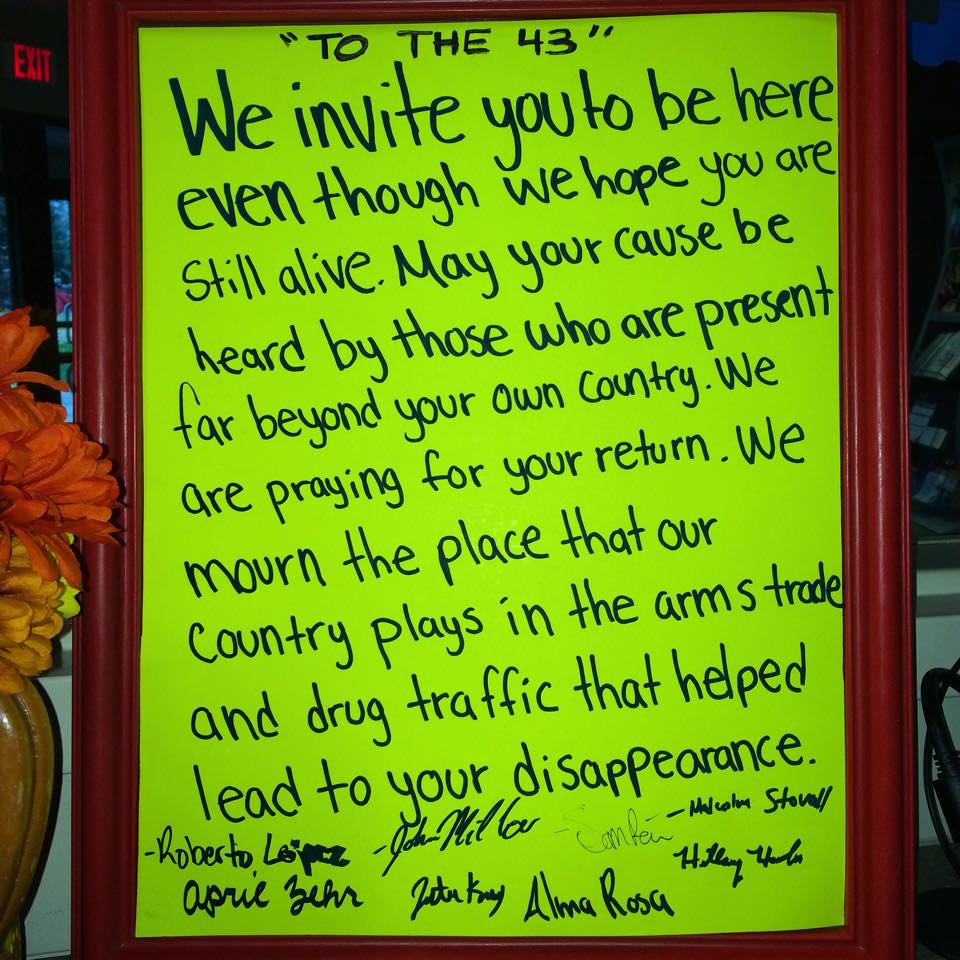 EXIT
"TO THE 43"
We invite you to be here
even though we hope you are
still alive. May your cause be
heard by those who are present
far beyond your own country. We
are praying for your return. We
mourn the place that our
country plays in the arms trade
and drug traffic that helped
lead to your disappearance.
- Malcolm Stovall
-Roberto López -John Miller
April Zehr Alma Rosa